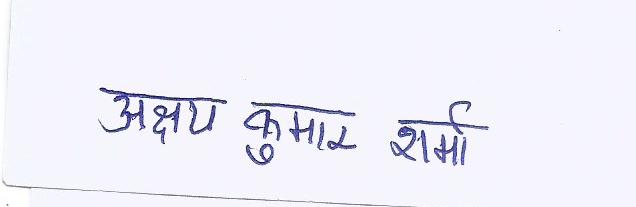 अक्षय कुमार शर्मा